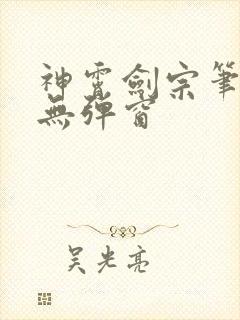 神霄劍宗筆
無彈窗
吳光亮